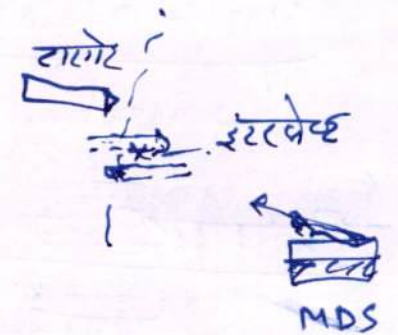 टारगेट
इंटरसेप्ट
MDS